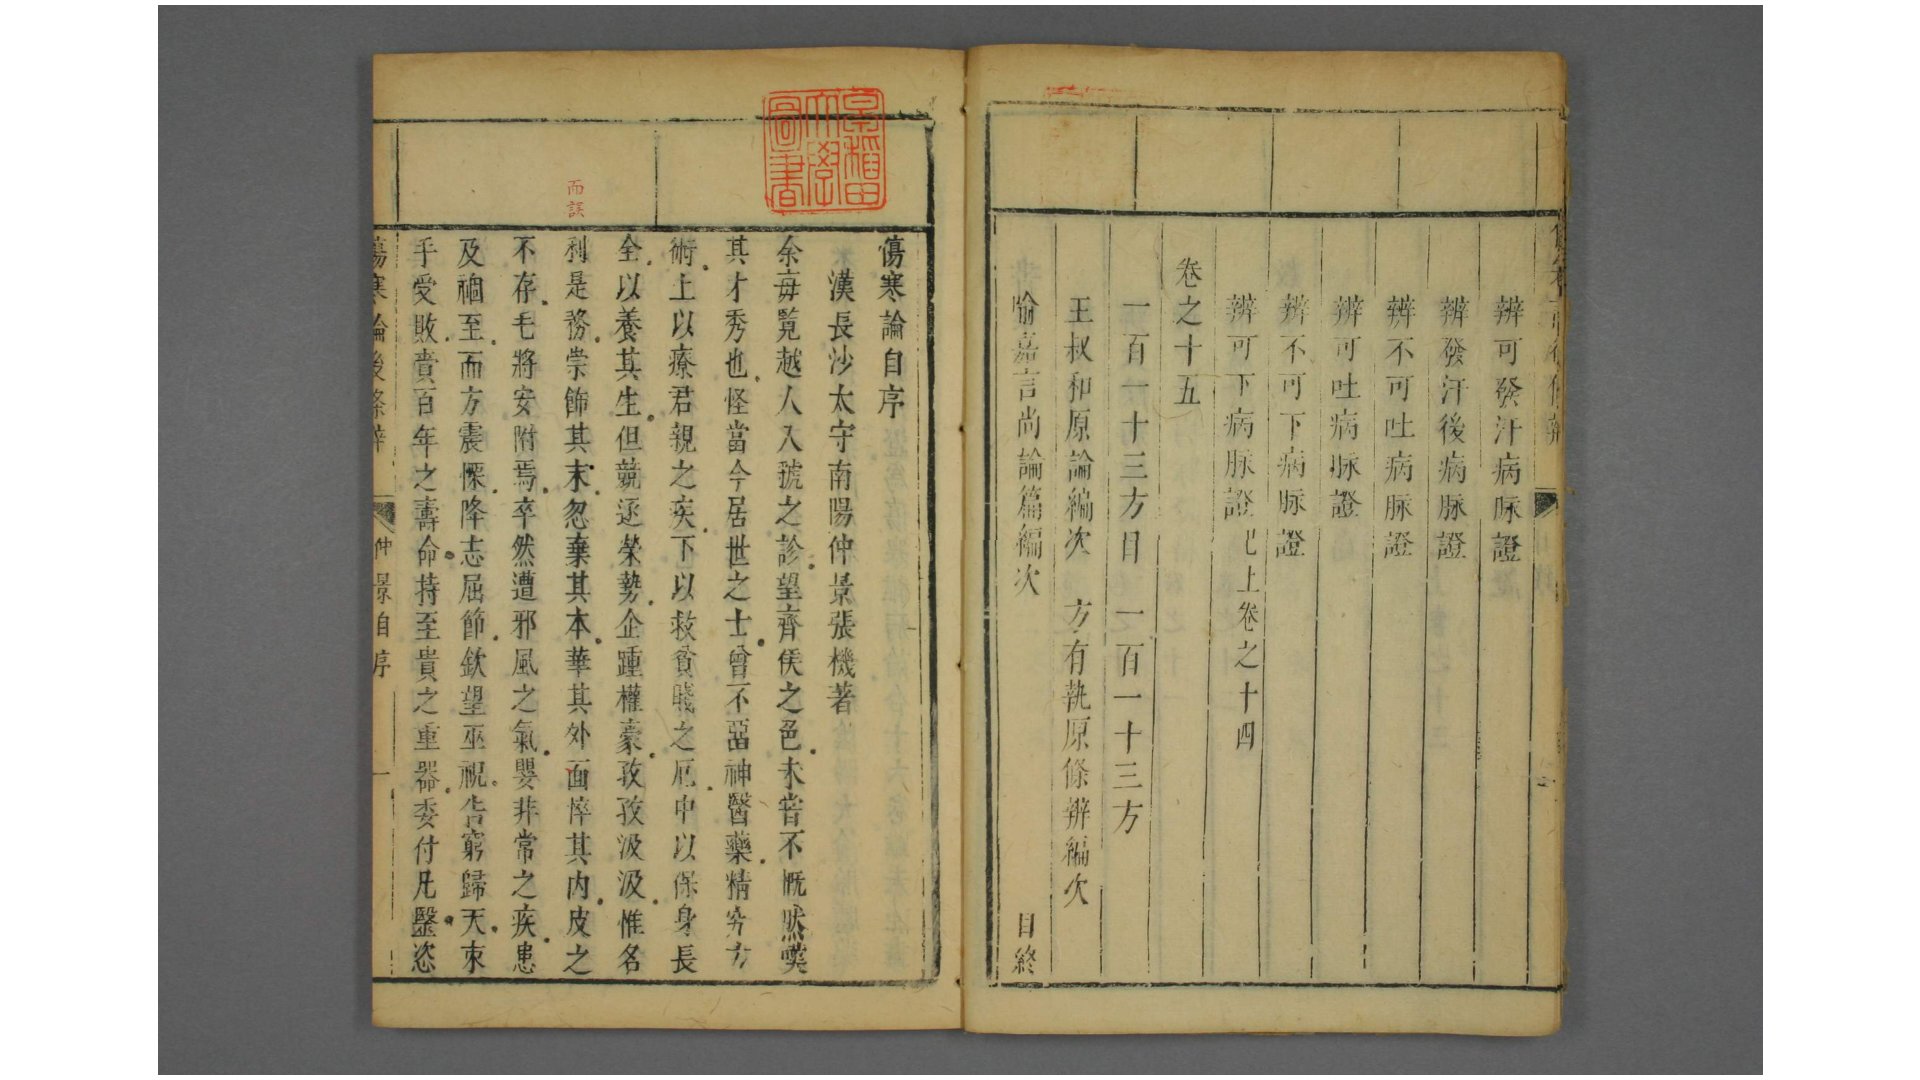 辨可發汗病脉證
辨發汗後病脉證
辨不可吐病脉證
辨可吐病脉證
辨不可下病脉證
辨可下病脉證 已上卷之十四
卷之十五
一百一十三方目 一百一十三方
王叔和原論編次 方有執原條辨編次
喻嘉言尚論篇編次 目終
早稻田大學圖書
傷寒論自序
漢長沙太守南陽仲景張機著
余每覽越人入虢之診望齊侯之色未嘗不慨然嘆
其才秀也怪當今居世之士曾不畱神醫藥精究方
術上以療君親之疾下以救貧賤之厄中以保身長
全以養其生但競逐榮勢企踵權豪孜孜汲汲惟名
利是務崇飾其末忽棄其本華其外面悴其内皮之
而誤
不存毛將安附焉卒然遭邪風之氣嬰非常之疾患
及禍至而方震慄降志屈節欽望巫祝告窮歸天束
手受敗賫百年之壽命持至貴之重器委付凡醫恣
傷寒論後條辨 仲景自序 一